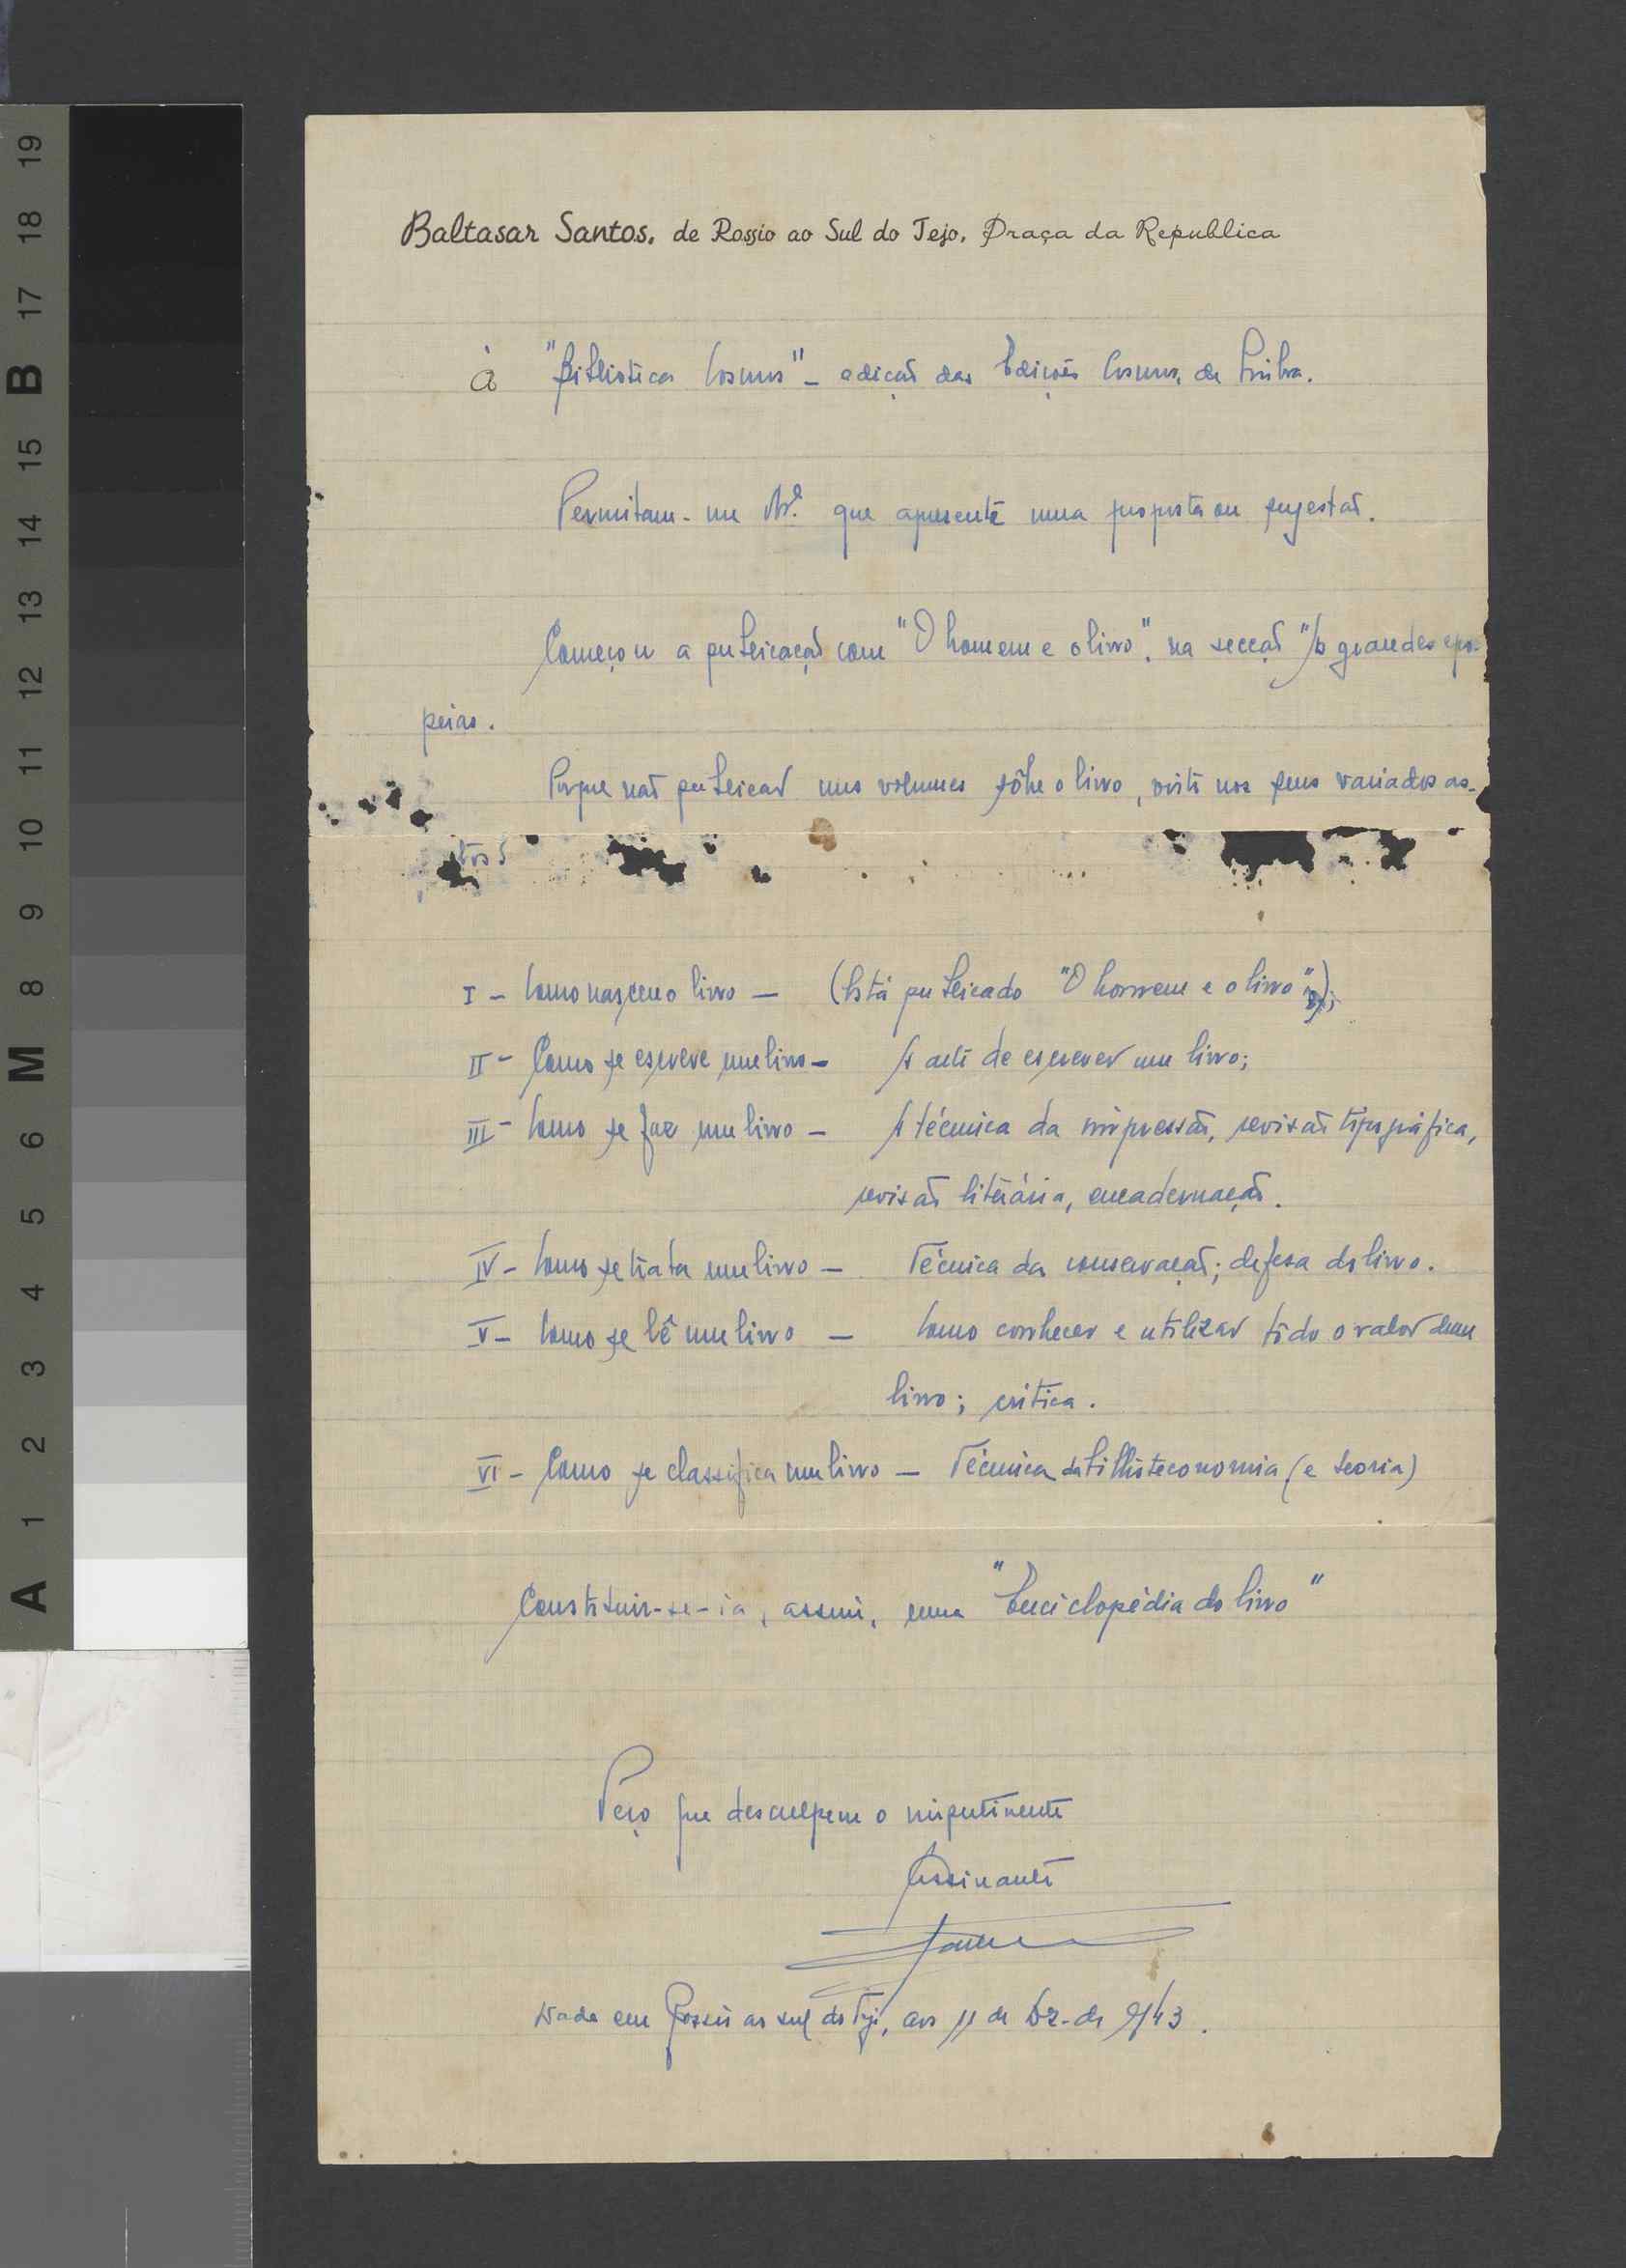 Baltasar Santos, de Rossio ao Sul do Tejo, Praça da Republica
À "Biblioteca Cosmos" - edição das Edições Cosmos, de Lisboa.
Permitam-me que apresente uma proposta ou sugestão.
Começou a publicação com "O homem e o livro", na secção "As grandes epo-
peias.
Porque não publicar uns volumes sôbre o livro, visto nos seus variados as-
tos?
I - Como nasceu o livro - (Está publicado "O homem e o livro");
II - Como se escreve um livro - A arte de escrever um livro;
III - Como se faz um livro - A técnica da impressão, revisão tipográfica,
revisão literária, encadernação.
IV - Como se trata um livro - Técnica da conservação; defesa do livro.
V - Como se lê um livro - Como conhecer e utilizar todo o valor dum
livro; crítica.
VI - Como se classifica um livro - Técnica da biblioteconomia (e teoria)
Constituir-se-ia, assim, uma "Enciclopédia do livro"
Peço que desculpem o impertinente
Assinante
Dada em Rossio ao sul do Tejo, aos 11 de Dz. de 943.
A 1 2 3 4 5 6 M 8 9 10 11 12 13 14 15 B 17 18 19